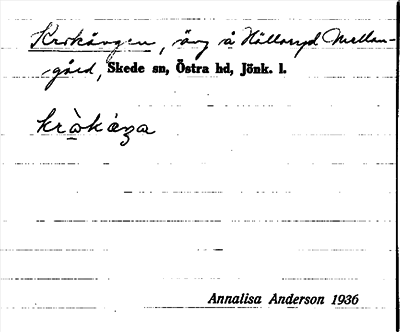 Krokängen, äng å Hällaryd Mellan-
gård, Skede sn, Östra hd, Jönk. l.
kràkæ̀ŋa
Annalisa Anderson 1936